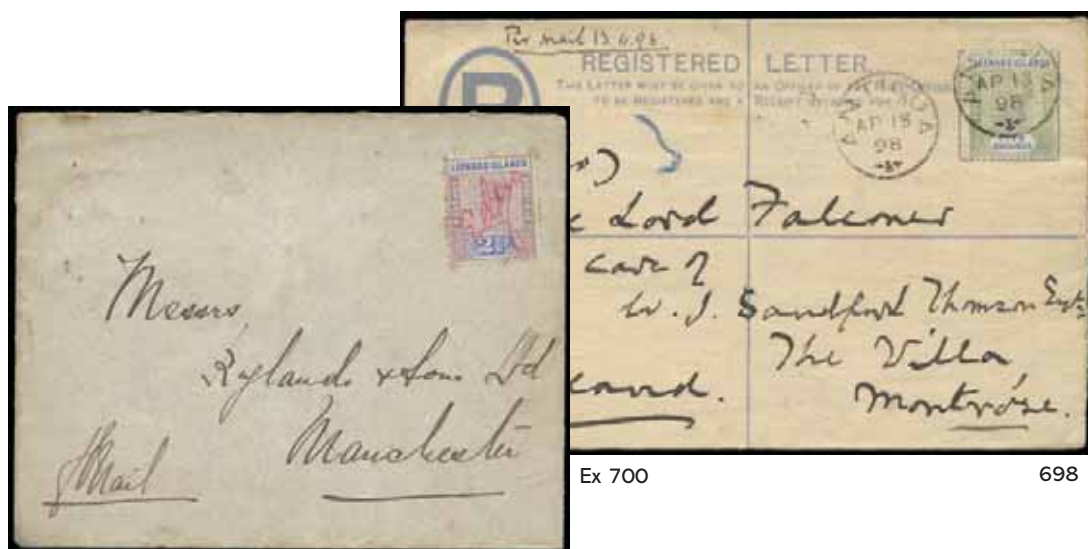 Per mail 13.4.98.
REGISTERED LETTER.
THIS LETTER MUST BE GIVEN TO AN OFFICER OF THE POST OFFICE
TO BE REGISTERED AND A RECEIPT OBTAINED FOR IT.
R
LEEWARD ISLANDS
ANTIGUA
AP 13
98
ANTIGUA
AP 13
98
Lord Falconer
care of
W. J. Sandford Thomson Esq
The Villa,
Montrose.
LEEWARD ISLANDS
2½d
Messrs
Rylands & Sons Ltd
Manchester
p Mail
Ex 700
698